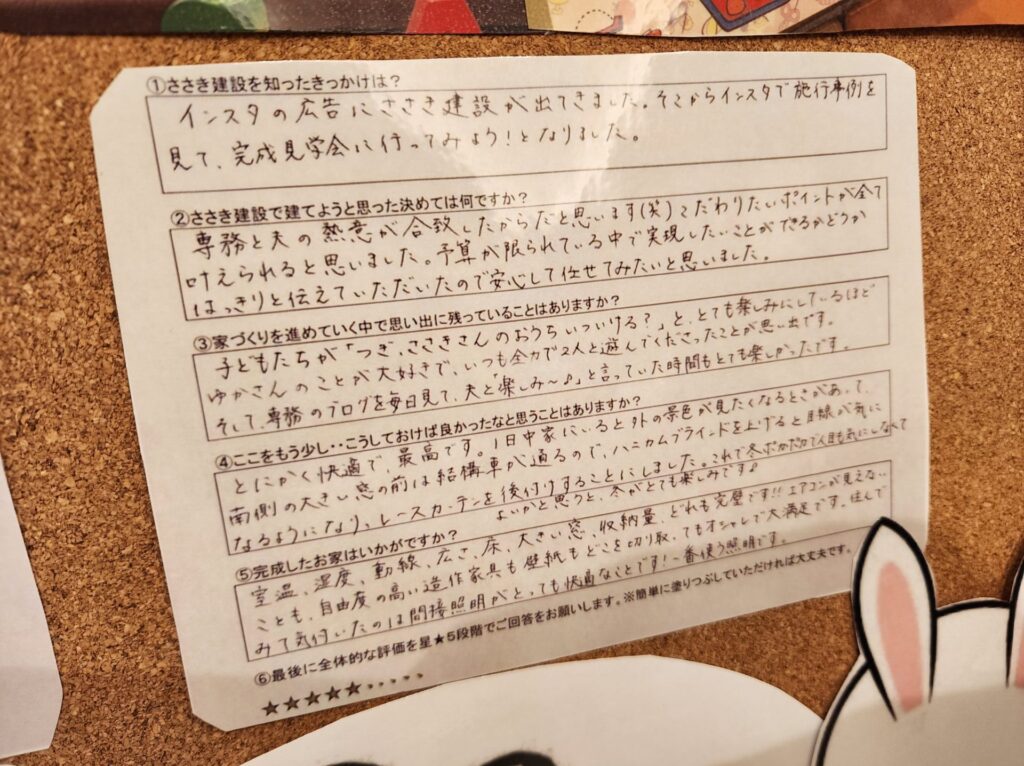 ①ささき建設を知ったきっかけは？
インスタの広告にささき建設が出てきました。そこからインスタで施行事例を
見て、完成見学会に行ってみよう！となりました。
②ささき建設で建てようと思った決めては何ですか？
専務と夫の熱意が合致したからだと思います(笑)こだわりたいポイントが全て
叶えられると思いました。予算が限られている中で実現したいことができるかどうか
はっきりと伝えていただいたので安心して任せてみたいと思いました。
③家づくりを進めていく中で思い出に残っていることはありますか？
子どもたちが「つぎ、ささきさんのおうちいついける？」と、とても楽しみにしているほど
ゆかさんのことが大好きで、いつも全力で2人と遊んでくださったことが思い出です。
そして、専務のブログを毎日見て、夫と楽しみ〜♪」と言っていた時間もとても楽しかったです。
④ここをもう少し‥こうしておけば良かったなと思うことはありますか？
とにかく快適で、最高です。1日中家にいると外の景色が見たくなるときがあって、
南側の大きい窓の前は結構車が通るので、ハニカムブラインドを上げると目線が気に
なるようになり、レースカーテンを後付けすることにしました。これで冬ポカポカで人目も気にしなくて
よいかと思うと、冬がとても楽しみです♪
⑤完成したお家はいかがですか？
室温、湿度、動線、広さ、床、大きい窓、収納量、どれも完璧です!!エアコンが見えない
ことも、自由度の高い造作家具も壁紙もどこを切り取ってもオシャレで大満足です。住んで
みて気付いたのは間接照明がとっても快適なことです！一番使う照明です。
⑥最後に全体的な評価を星★5段階でご回答をお願いします。※簡単に塗りつぶしていただければ大丈夫です。
★★★★★